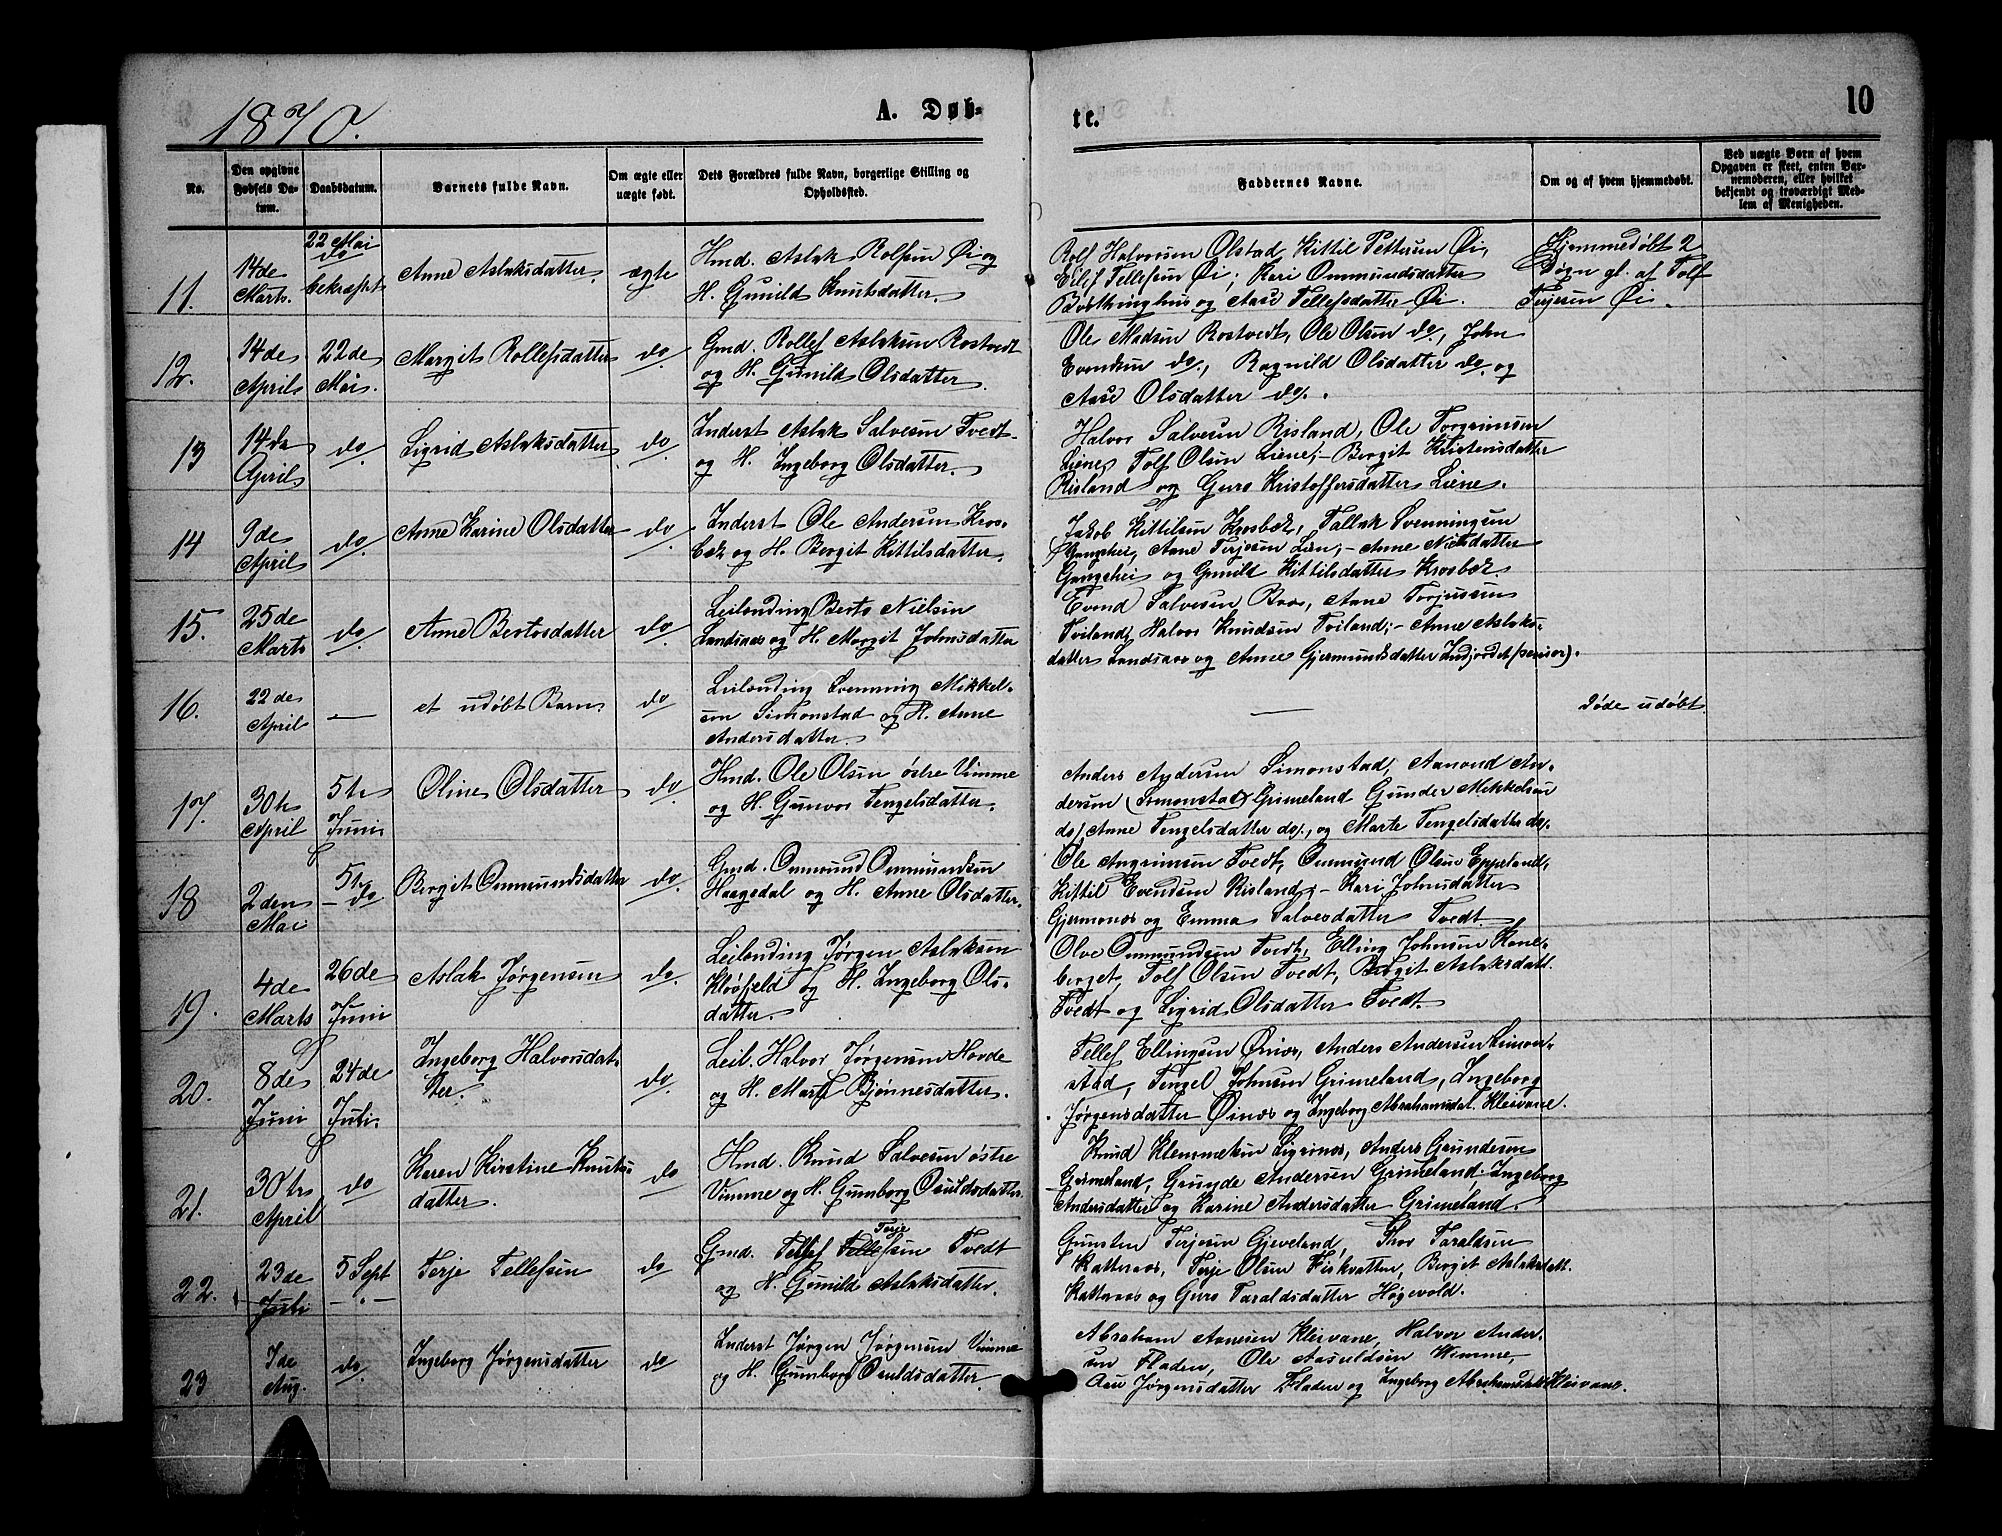 1870.
A. Døb-
te.
10
No.
Den opgivne Fødsels Datum.
Daabsdatum.
Barnets fulde Navn.
Om ægte eller uægte født.
Dets Forældres fulde Navn, borgerlige Stilling og Opholdssted.
Faddernes Navne.
Om og af hvem hjemmedøbt.
Ved uægte Børn af hvem Opgaven er skeet, enten Barnemoderen, eller hvilket bekjendt og troværdigt Medlem af Menigheden.
11.
14de Marts.
22 Mai do bekræftet
Anne Aslaksdatter.
ægte
Hmd. Aslak Rolfsen Øi og
H. Gunild Knutsdatter.
Rolf Halvorsen Olstad, Kittil Pettersen Øi,
Eilef Tellefsen Øi; Kari Ommundsdatter
og Aase Tellefsdatter Øi.
Hjemmedøbt 2
Døgn gl. af Tolf
Terjesen Øi.
12.
14de April
22de Mai.
Margit Rollefsdatter
do
Gmd. Rollef Aslaksen Rostvedt
og H. Gunild Olsdatter.
Ole Madsen Rostvedt, Ole Olsen do, John
Evendsen do, Ragnild Olsdatter do og
Aase Olsdatter do.
13
14de April
do
Sigrid Aslaksdatter
do
Inderst Aslak Salvesen Tvedt
og H. Ingeborg Olsdatter.
Halvor Salvesen Risland, Ole Torgrimsen
Liene, Tolf Olsen Liene; Bergit Kristensdatter
Risland og Guro Kristoffersdatter Liene.
14
9de April
do
Anne Karine Olsdatter
do
Inderst Ole Andersen Kros-
bæk og H. Bergit Kittilsdatter.
Jakob Kittilsen Krosbæk, Tallak Svenningsen
Gangshei, Aane Terjesen Lien; Anne Nielsdatter
Gangshei og Gunild Kittilsdatter Krosbæk
15.
25de Marts
do
Anne Bertosdatter
do
Leilænding Berto Nielsen
Landsaas og H. Margit Johnsdatter
Evend Salvesen Baas, Aane Torjussen
Toiland, Halvor Knudsen Toiland; Anne Aslaks-
datter Landsaas og Anne Gjermundsdatter Indjordet (senior).
16.
22de April
—
et udøbt Barn
do
Leilænding Svenning Mikkel-
sen Simonstad og H. Anne
Andersdatter.
—
Døde udøbt.
17.
30te April
5te Juni
Oline Olsdatter
do
Hmd. Ole Olsen østre Vimme
og H. Gunvor Tengelsdatter.
Anders Andersen Simonstad, Aanond An-
dersen (Simonstad) Grimeland Gunder Mikkelsen
do, Anne Tengelsdatter do, og Marte Tengelsdatter do.
18
2den Mai
5te do
Bergit Ommundsdatter
do
Gmd. Ommund Ommundsen
Haagsdal og H. Anne Olsdatter.
Ole Angrimsen Tvedt, Ommund Olsen Eppeland,
Kittil Evendsen Risland; Kari Johnsdatter
Gjermonæs og Emma Salvesdatter Tvedt.
19.
4de Marts
26de Juni
Aslak Jørgensen
do
Leilænding Jørgen Aslaksen
Kløvfjeld og H. Ingeborg Ols-
datter.
Olve Ommundsen Tvedt, Elling Johnsen Kane-
berget, Tolf Olsen Tvedt, Bergit Aslaksdatt.
Tvedt og Sigrid Olsdatter Tvedt.
20.
8de Juni
24de Juli.
Ingeborg Halvorsdat-
ter.
do
Leil. Halvor Jørgensen Hovde
og H. Marthe Bjønnesdatter.
Tellef Ellingsen Øinæs, Anders Andersen Simon-
stad, Tengel Johnsen Grimeland, Ingeborg
Jørgensdatter Øinæs og Ingeborg Abrahamsdat. Kleivane.
21.
30te April
do
Karen Kirstine Knuts-
datter.
do
Hmd. Knud Salvesen østre
Vimme og H. Gunborg Osuldsdatter.
Knud Klemmetsen Sigrinæs, Anders Gundersen
Grimeland, Andersen Grimeland, Ingeborg
Andersdatter og Karine Andersdatter Grimeland.
22.
23de Juli
5 Sept
Terje Tellefsen
do
Gmd. Tellef Tellefsen Terje Tvedt
og H. Gunild Aslaksdatter.
Gunsten Terjesen Gjeveland, Thor Taraldsen
Katteraas, Terje Olsen Fiskvatten, Bergit Aslaksdatt.
Katteraas og Guro Taraldsdatter Høgevold.
23
7de Aug.
do
Ingeborg Jørgensdatter
do
Inderst Jørgen Jørgensen Vimme
og H. Gunborg Osuldsdatter.
Abraham Aanesen Kleivane, Halvor Ander-
sen Fladen, Ole Aasuldsen Himme,
Jørgensdatter Fladen og Ingeborg Abrahamsdatt Kleivane.